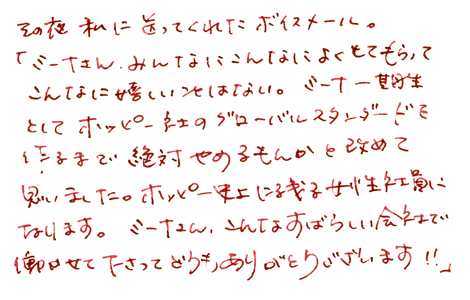 その夜 私に送ってくれたボイスメール。
「ミーナさん、みんなにこんなによくしてもらって
こんなに嬉しいことはない。ミーナ一期生
としてホッピー社のグローバルスタンダードを
作るまで絶対やめるもんかと改めて
思いました。ホッピー史上に残る女性社員に
なります。ミーナさん、こんなすばらしい会社で
働かせて下さってどうもありがとうございます!!」